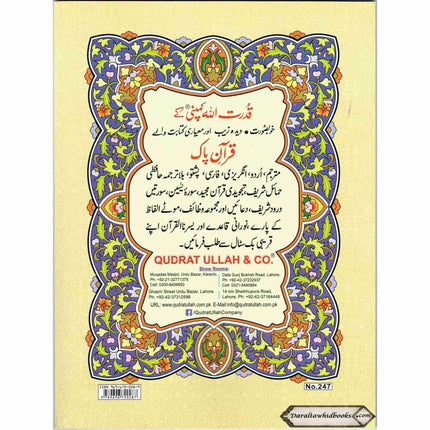 قدرت اللہ کمپنی® کے
خوبصورت • دیدہ زیب اور معیاری کتابت والے
قرآن پاک
مترجم، اُردو، انگریزی، فارسی، پشتو، بلا ترجمہ حافظی
حمائل شریف، تجویدی قرآن مجید، سورۂ یٰسین، سورتیں
درود شریف، دعائیں اور مجموعہ وظائف، موٹے الفاظ
کے پارے، نورانی قاعدے اور یسرنا القرآن اپنے
قریبی بک سٹال سے طلب فرمائیں۔
QUDRAT ULLAH & CO.®
Show Rooms:
Muqadas Masjid, Urdu Bazar, Karachi
Ph: +92-21-32771075
Cell: 0300-8406650
Data Gunj Bukhsh Road, Lahore.
Ph: +92-42-37232937
Cell: 0321-8490884
Ghazni Street Urdu Bazar, Lahore.
Ph: +92-42-37312598
14 km Sheikhupura Road, Lahore.
Ph: +92-42-37164448
URL: www.qudratullah.com.pk E-Mail:info@qudratullah.com.pk
/QudratUllahCompany
No.247
Daraltawhidbooks.com